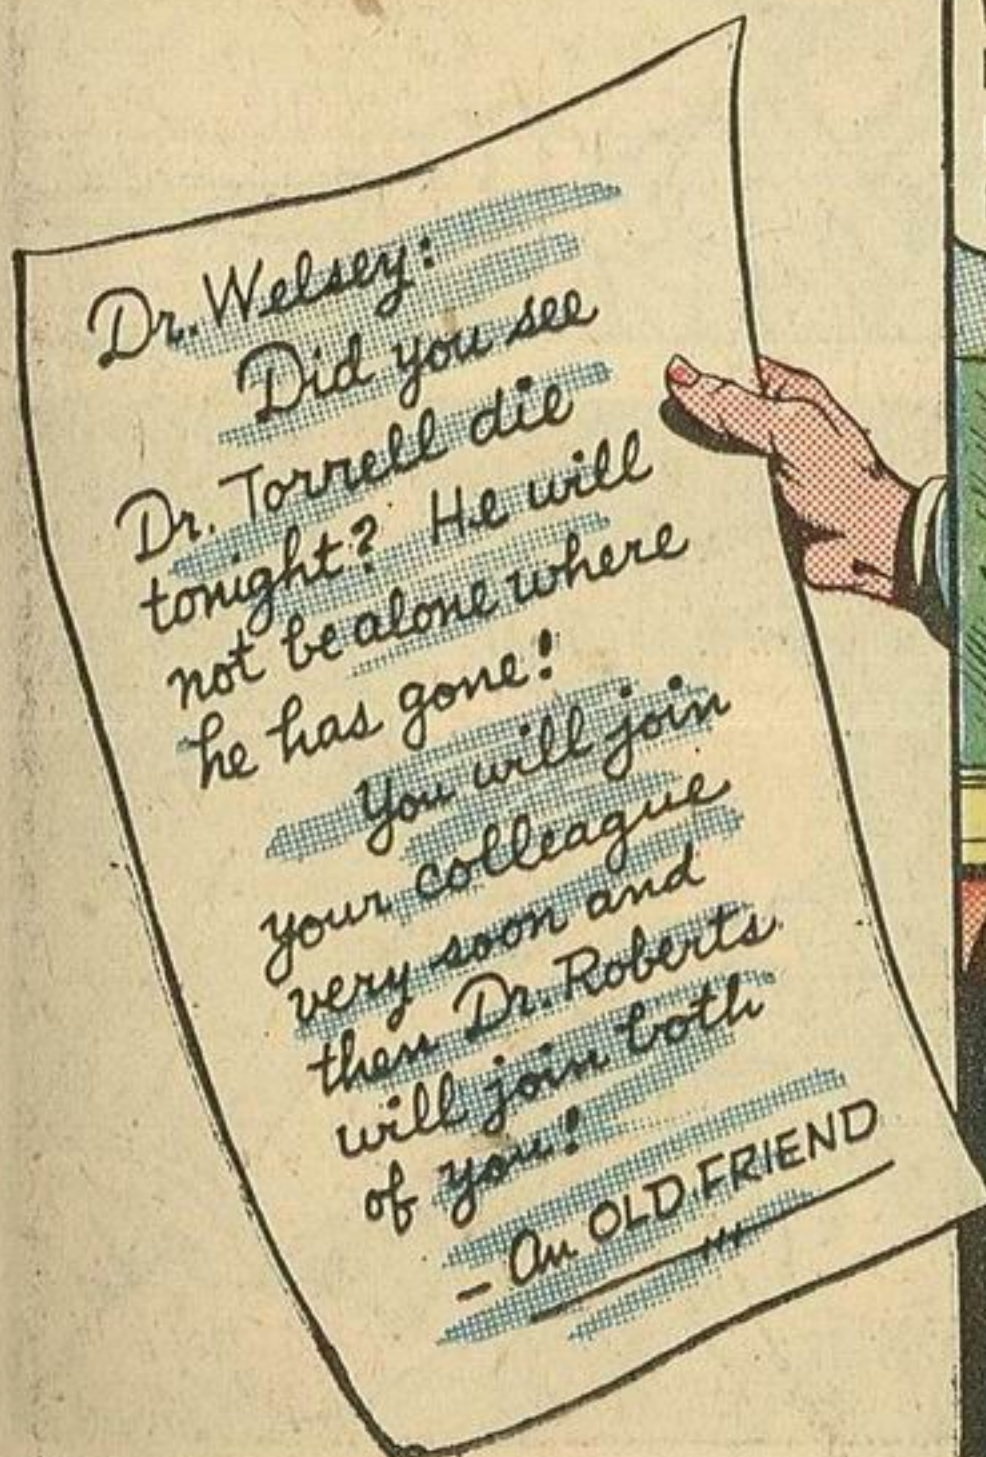 Dr. Welsey:
Did you see
Dr. Torrell die
tonight? He will
not be alone where
he has gone!
You will join
your colleague
very soon and
then Dr. Roberts
will join both
of you!
- An OLD FRIEND